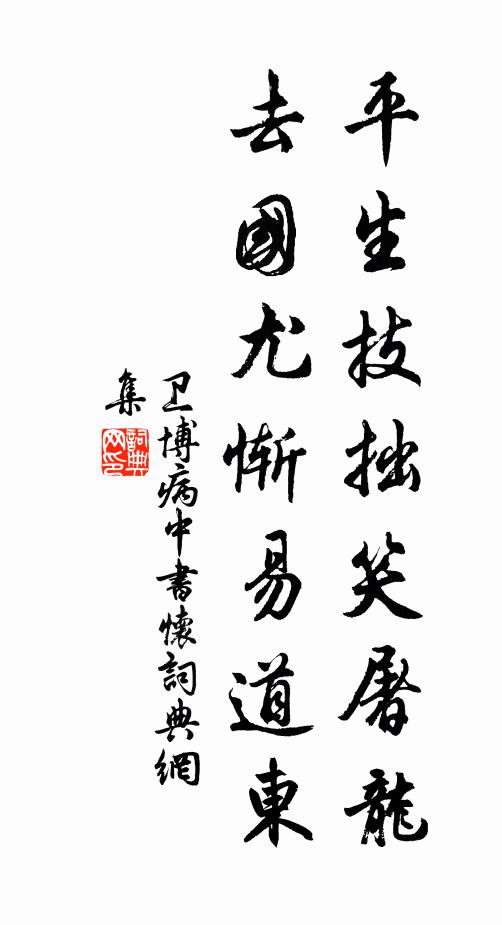 平生技拙笑屠龍
去國尤慚易道東
卫博病中書懷詞典網
集
詞典网印